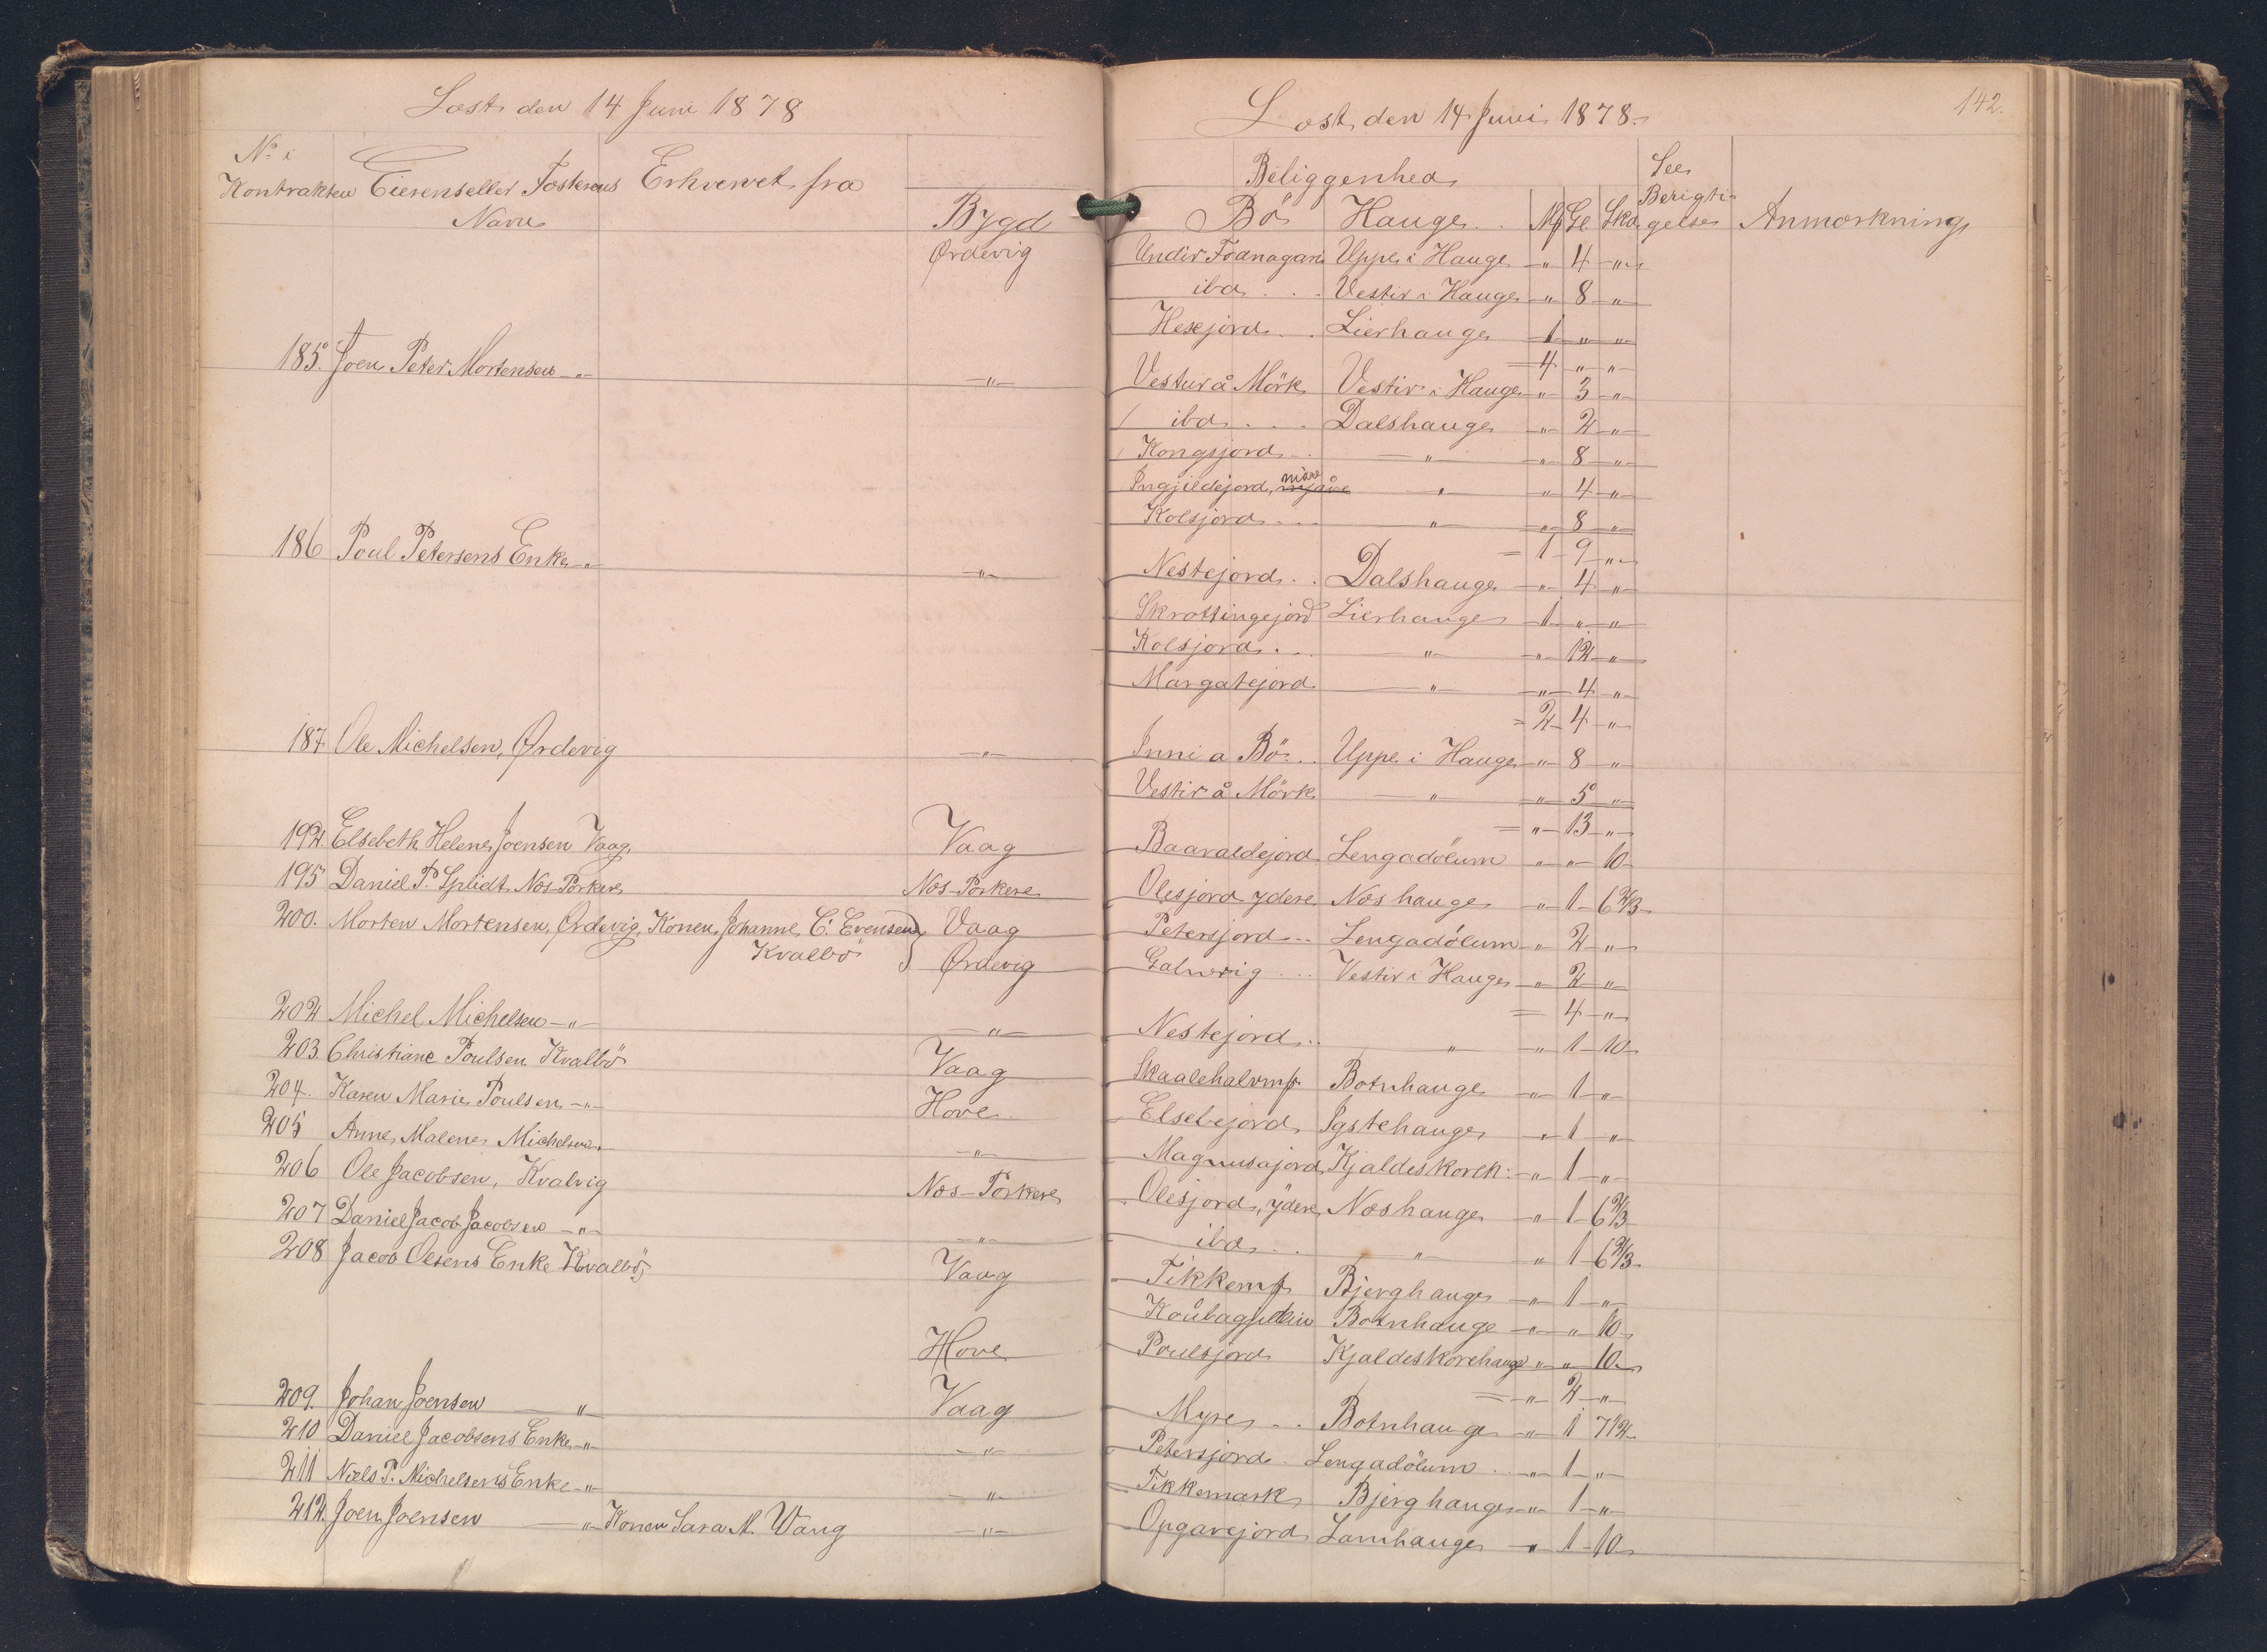 Læst den 14 Juni 1878
No i
Kontrakten Eierens eller Fæsterens Erhvervet fra
Navn
Bygd
Ørdevig
185. Joen Peter Mortensen -"- -"-
186 Poul Petersens Enke -"- -"-
187 Ole Michelsen, Ørdevig -"-
194. Elsebeth Helene Joensen Vaag Vaag
195 Daniel P. Splidt Næs-Porkere Næs-Porkere
200. Morten Mortensen, Ørdevig, Konen Johanne C. Evensen } Vaag
Kvalbö Ørdevig
202 Michel Michelsen -"- -"-
203. Christiane Poulsen Kvalbö Vaag
204. Karen Marie Poulsen -"- Hove
205 Anne Malene Michelsen -"- -"-
206 Ole Jacobsen, Kvalvig Næs-Porkere
207 Daniel Jacob Jacobsen -"- -"-
208 Jacob Olsens Enke Kvalbö Vaag
Hove
209. Johan Joensen " Vaag
210 Daniel Jacobsens Enke -"- -"-
211 Niels P. Michelsens Enke -"- -"-
212. Joen Joensen -"- Konen Sara M. Vaag -"-
142.
Læst den 14 Juni 1878
Beliggenhed See
Berigti-
Bö Hauge Mk Gl Sko gelse Anmærkning
Undir Uppe i Hauge " 4 "
ibd . . Vestir i Hauge " 8 "
Hesejord . . Lierhauge 1 " "
= 4 " "
Vestur å Mörk Vestir i Hauge " 3 "
ibd . . . Dalshauge " 2 "
Kongsjord . . " " 8 "
Ingjildejord, mjåve niåre " " 4 "
Kolsjord . . . " " 8 "
= 1 9 "
Nestejord . . Dalshauge " 4 "
Skrottingejord Lierhauge 1 " "
Kolsjord . . . " " 12 "
Margatejord " " 4 "
= 2 4 "
Inni a Bö . . Uppe i Hauge " 8 "
Vestir å Mörk " " 5 "
= " 13 "
Baaraldejord Lengadölum " " 10
Olesjord ydere Næshauge " 1 6 2/3
Petersjord . . Lengadölum " 2 "
Galwerig . . . Vestir i Hauge " 2 "
= 4 "
Nestejord . . " " 1 10
Skaalehalvmk Botnhauge " 1 "
Elsebejord Ygstehauge " 1 "
Magnusajord Kjaldeskoreh: " 1 "
Olesjord, ydere Næshauge " 1 6 2/3
ibd . . " " 1 6 2/3
Tikkemk Bjerghauge " 1 "
Botnhauge " " 10
Poulsjord Kjaldeskorehauge " " 10
= " 2 "
Myre . . Botnhauge " 1 7 1/2
Petersjord . Lengadölum . . " 1 "
Tikkemark Bjerghauge " 1 "
Opgarejord Lamhauge " 1 10